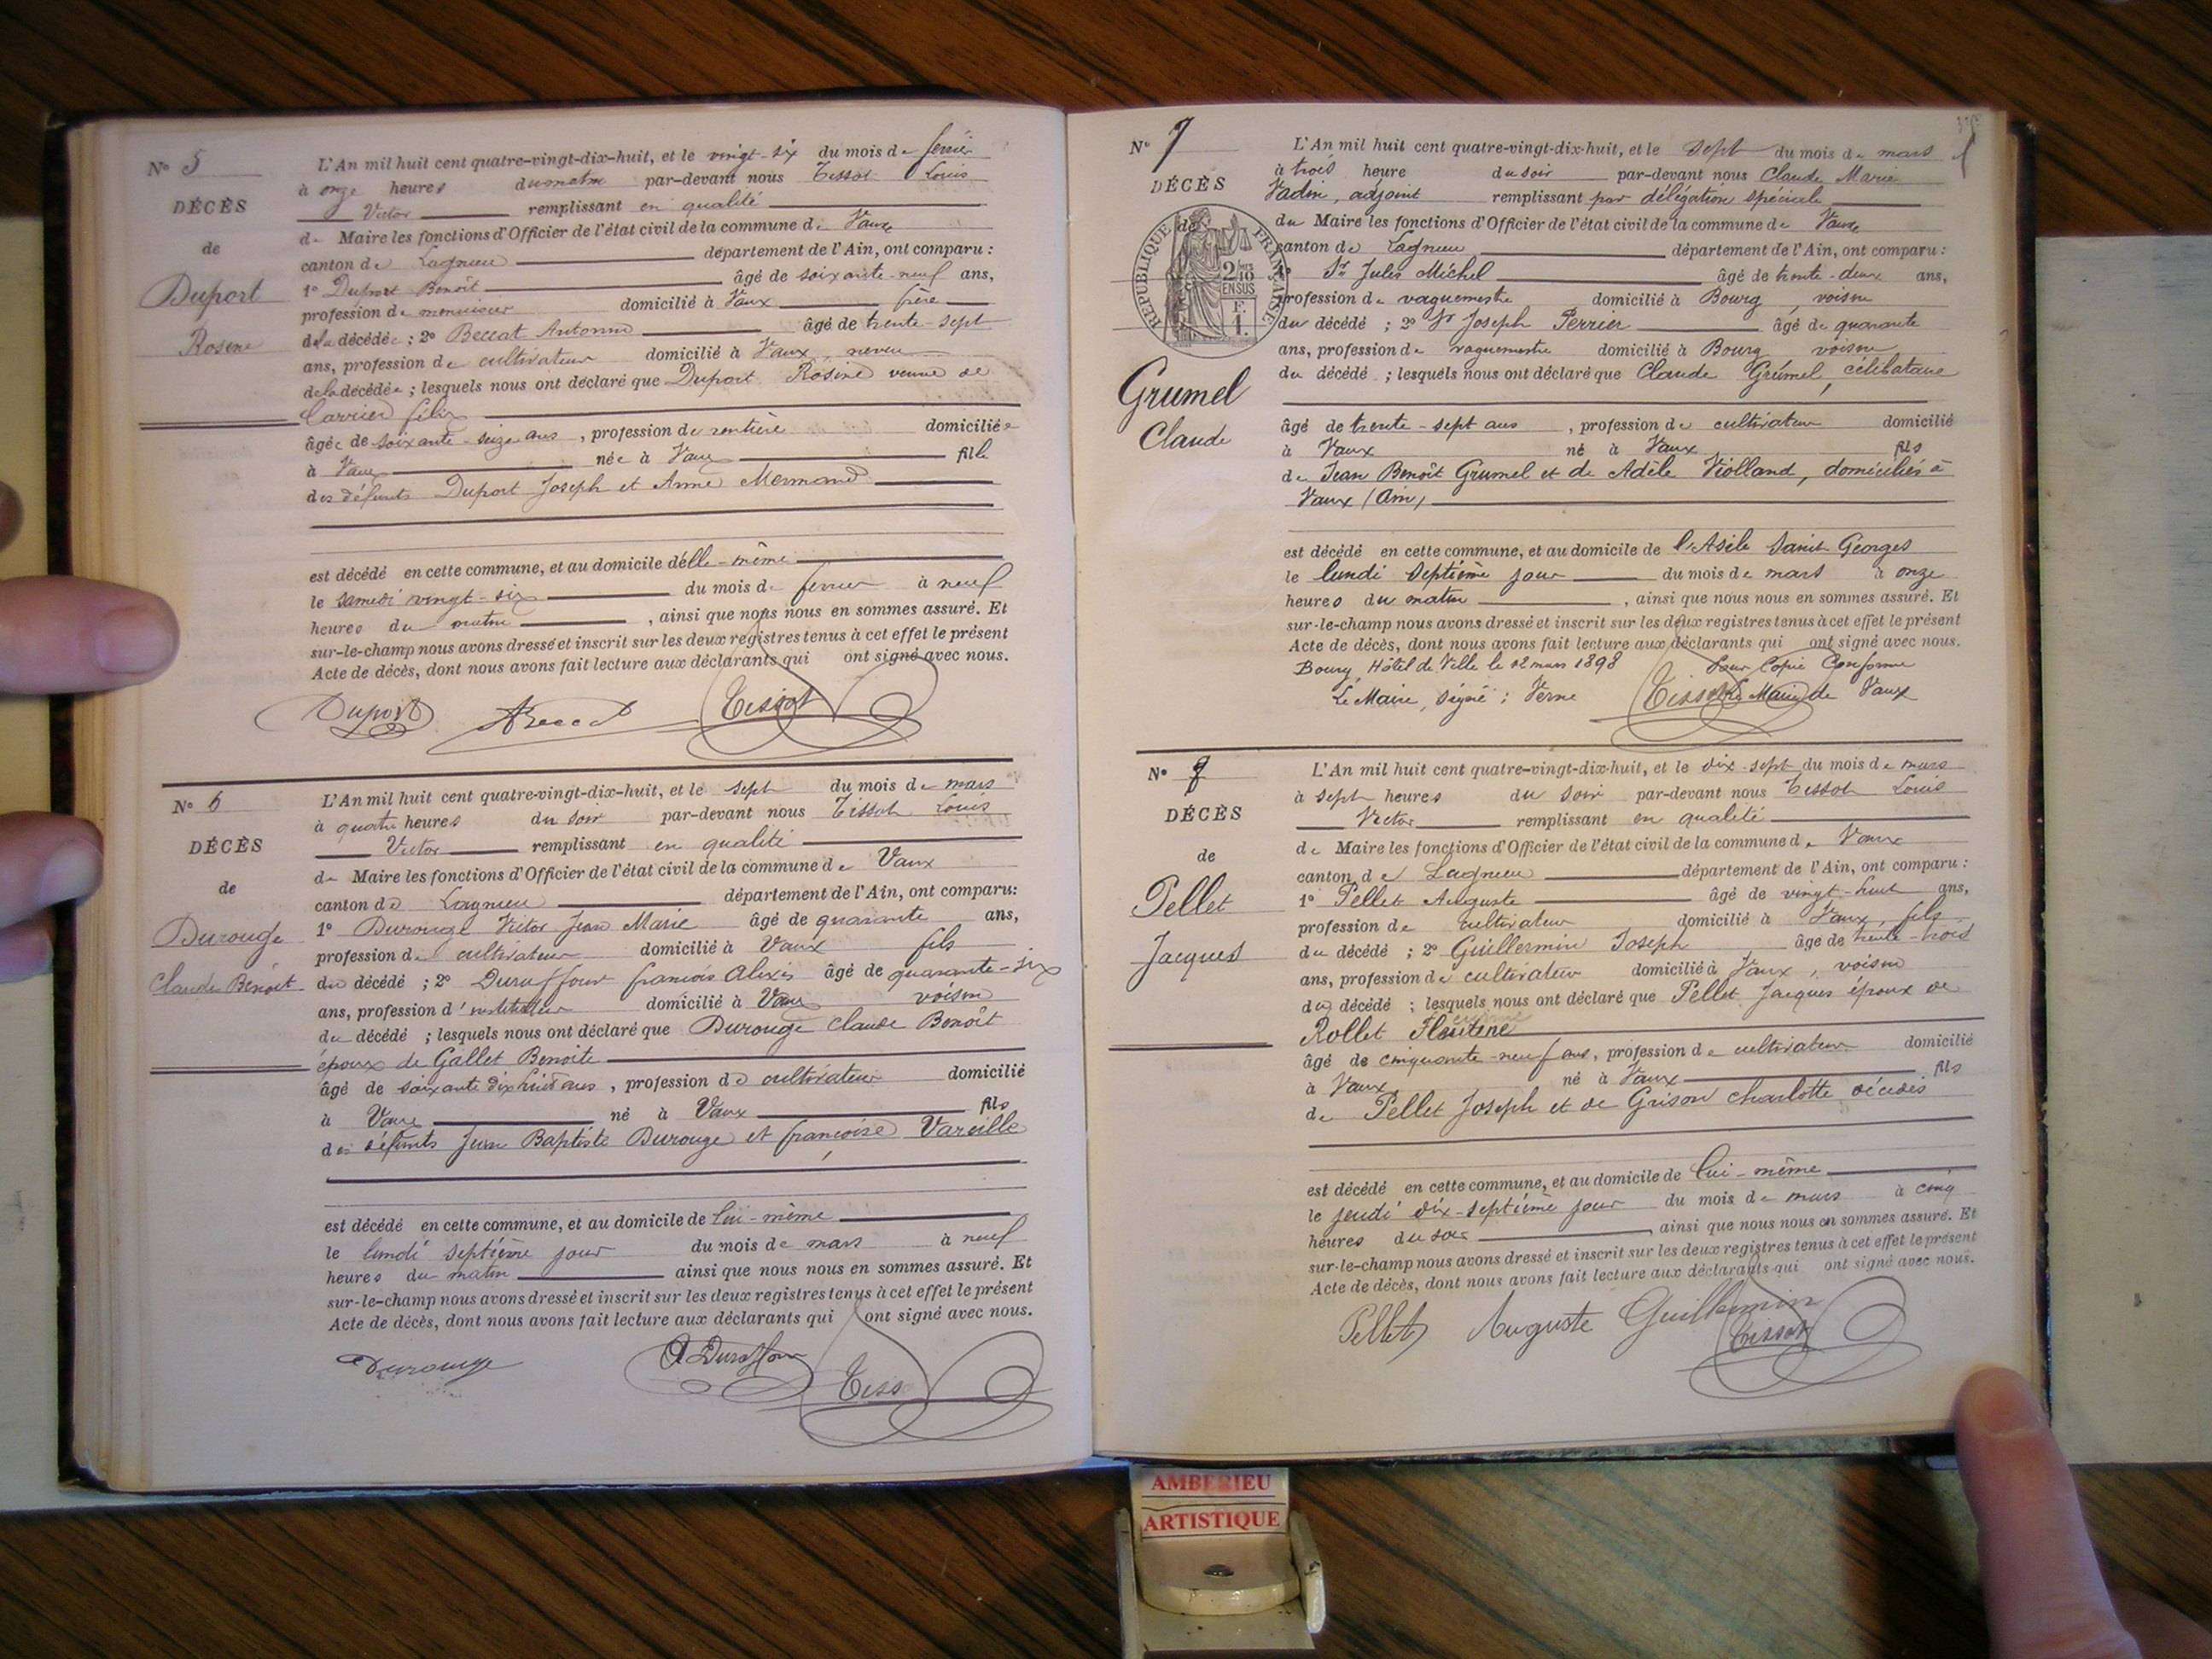 N° 5
DÉCÈS
de
Duport
Rosine
L'An mil huit cent quatre-vingt-dix-huit, et le vingt-six du mois de février
à onze heures du matin par-devant nous Tissot Louis
Victor remplissant en qualité
de Maire les fonctions d'Officier de l'état civil de la commune de Vaux
canton de Lagnieu département de l'Ain, ont comparu :
1° Duport Benoît âgé de soixante-neuf ans,
profession de menuisier domicilié à Vaux frère
de la décédée ; 2° Beccat Antonin âgé de trente-sept
ans, profession de cultivateur domicilié à Vaux, neveu
de la décédée ; lesquels nous ont déclaré que Duport Rosine veuve de
Carrier félix
âgée de soixante-seize ans, profession de rentière domiciliée
à Vaux née à Vaux fille
des défunts Duport Joseph et Anne Mermand
est décédé en cette commune, et au domicile d'elle-même
le samedi vingt-six du mois de fevrier à neuf
heures du matin, ainsi que nous nous en sommes assuré. Et
sur-le-champ nous avons dressé et inscrit sur les deux registres tenus à cet effet le présent
Acte de décès, dont nous avons fait lecture aux déclarants qui ont signé avec nous.
Duport Tissot
N° 6
DÉCÈS
de
Durouge
Claude Benoît
L'An mil huit cent quatre-vingt-dix-huit, et le sept du mois de mars
à quatre heures du soir par-devant nous Tissot Louis
Victor remplissant en qualité
de Maire les fonctions d'Officier de l'état civil de la commune de Vaux
canton de Lagnieu département de l'Ain, ont comparu:
1° Durouge Victor Jean Marie âgé de quarante ans,
profession de cultivateur domicilié à Vaux fils
du décédé ; 2° Duraffour françois Alexis âgé de quarante-six
ans, profession d'instituteur domicilié à Vaux voisin
du décédé ; lesquels nous ont déclaré que Durouge Claude Benoît
époux de Gallet Benoite
âgé de soixante dix huit ans, profession de cultivateur domicilié
à Vaux né à Vaux fils
des défunts Jean Baptiste Durouge et françoise Vareille
est décédé en cette commune, et au domicile de lui-même
le lundi septième jour du mois de mars à neuf
heures du matin ainsi que nous nous en sommes assuré. Et
sur-le-champ nous avons dressé et inscrit sur les deux registres tenus à cet effet le présent
Acte de décès, dont nous avons fait lecture aux déclarants qui ont signé avec nous.
Durouge A Duraffour Tiss
N° 7
DÉCÈS
de
RÉPUBLIQUE FRANÇAISE
2/10 EN SUS
F. 1.
Grumel
Claude
L'An mil huit cent quatre-vingt-dix-huit, et le sept du mois de mars
à trois heure du soir par-devant nous Claude Marie
Vadin, adjoint remplissant par délégation spéciale
du Maire les fonctions d'Officier de l'état civil de la commune de Vaux
canton de Lagnieu département de l'Ain, ont comparu :
1° Sr Jules Michel âgé de trente-deux ans,
profession de vaguemestre domicilié à Bourg, voisin
du décédé ; 2° Sr Joseph Perrier âgé de quarante
ans, profession de vaguemestre domicilié à Bourg voisin
du décédé ; lesquels nous ont déclaré que Claude Grumel, célibataire
âgé de trente-sept ans, profession de cultivateur domicilié
à Vaux né à Vaux fils
de Jean Benoît Grumel et de Adèle Violland, domiciliés à
Vaux (Ain)
est décédé en cette commune, et au domicile de l'Asile Saint Georges
le lundi septième jour du mois de mars à onze
heures du matin, ainsi que nous nous en sommes assuré. Et
sur-le-champ nous avons dressé et inscrit sur les deux registres tenus à cet effet le présent
Acte de décès, dont nous avons fait lecture aux déclarants qui ont signé avec nous.
Bourg, Hôtel de Ville le 12 mars 1898 Pour Copie Conforme
Le Maire, Signé : Verne Tissot Le Maire de Vaux
N° 8
DÉCÈS
de
Pellet
Jacques
L'An mil huit cent quatre-vingt-dix-huit, et le dix-sept du mois de mars
à sept heures du soir par-devant nous Tissot Louis
Victor remplissant en qualité
de Maire les fonctions d'Officier de l'état civil de la commune de Vaux
canton de Lagnieu département de l'Ain, ont comparu :
1° Pellet Auguste âgé de vingt-huit ans,
profession de cultivateur domicilié à Vaux, fils
du décédé ; 2° Guillermin Joseph âgé de trente-trois
ans, profession de cultivateur domicilié à Vaux, voisin
du décédé ; lesquels nous ont déclaré que Pellet Jacques époux de
Rollet
âgé de cinquante-neuf ans, profession de cultivateur domicilié
à Vaux né à Vaux fils
de Pellet Joseph et de Grison charlotte décédés
est décédé en cette commune, et au domicile de lui-même
le jeudi dix-septième jour du mois de mars à cinq
heures du soir, ainsi que nous nous en sommes assuré. Et
sur-le-champ nous avons dressé et inscrit sur les deux registres tenus à cet effet le présent
Acte de décès, dont nous avons fait lecture aux déclarants qui ont signé avec nous.
Pellet Auguste Guillermin
Tissot
AMBERIEU
ARTISTIQUE